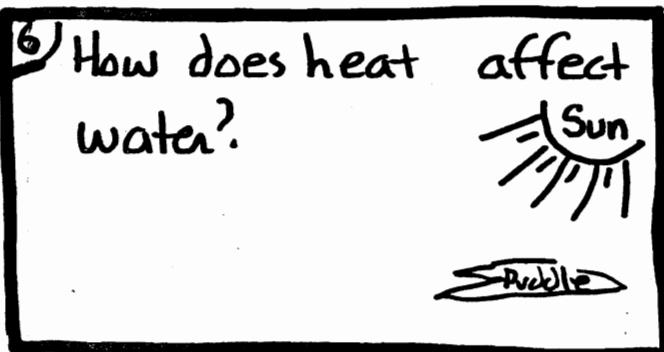 6
How does heat affect
water?
Sun
Puddle